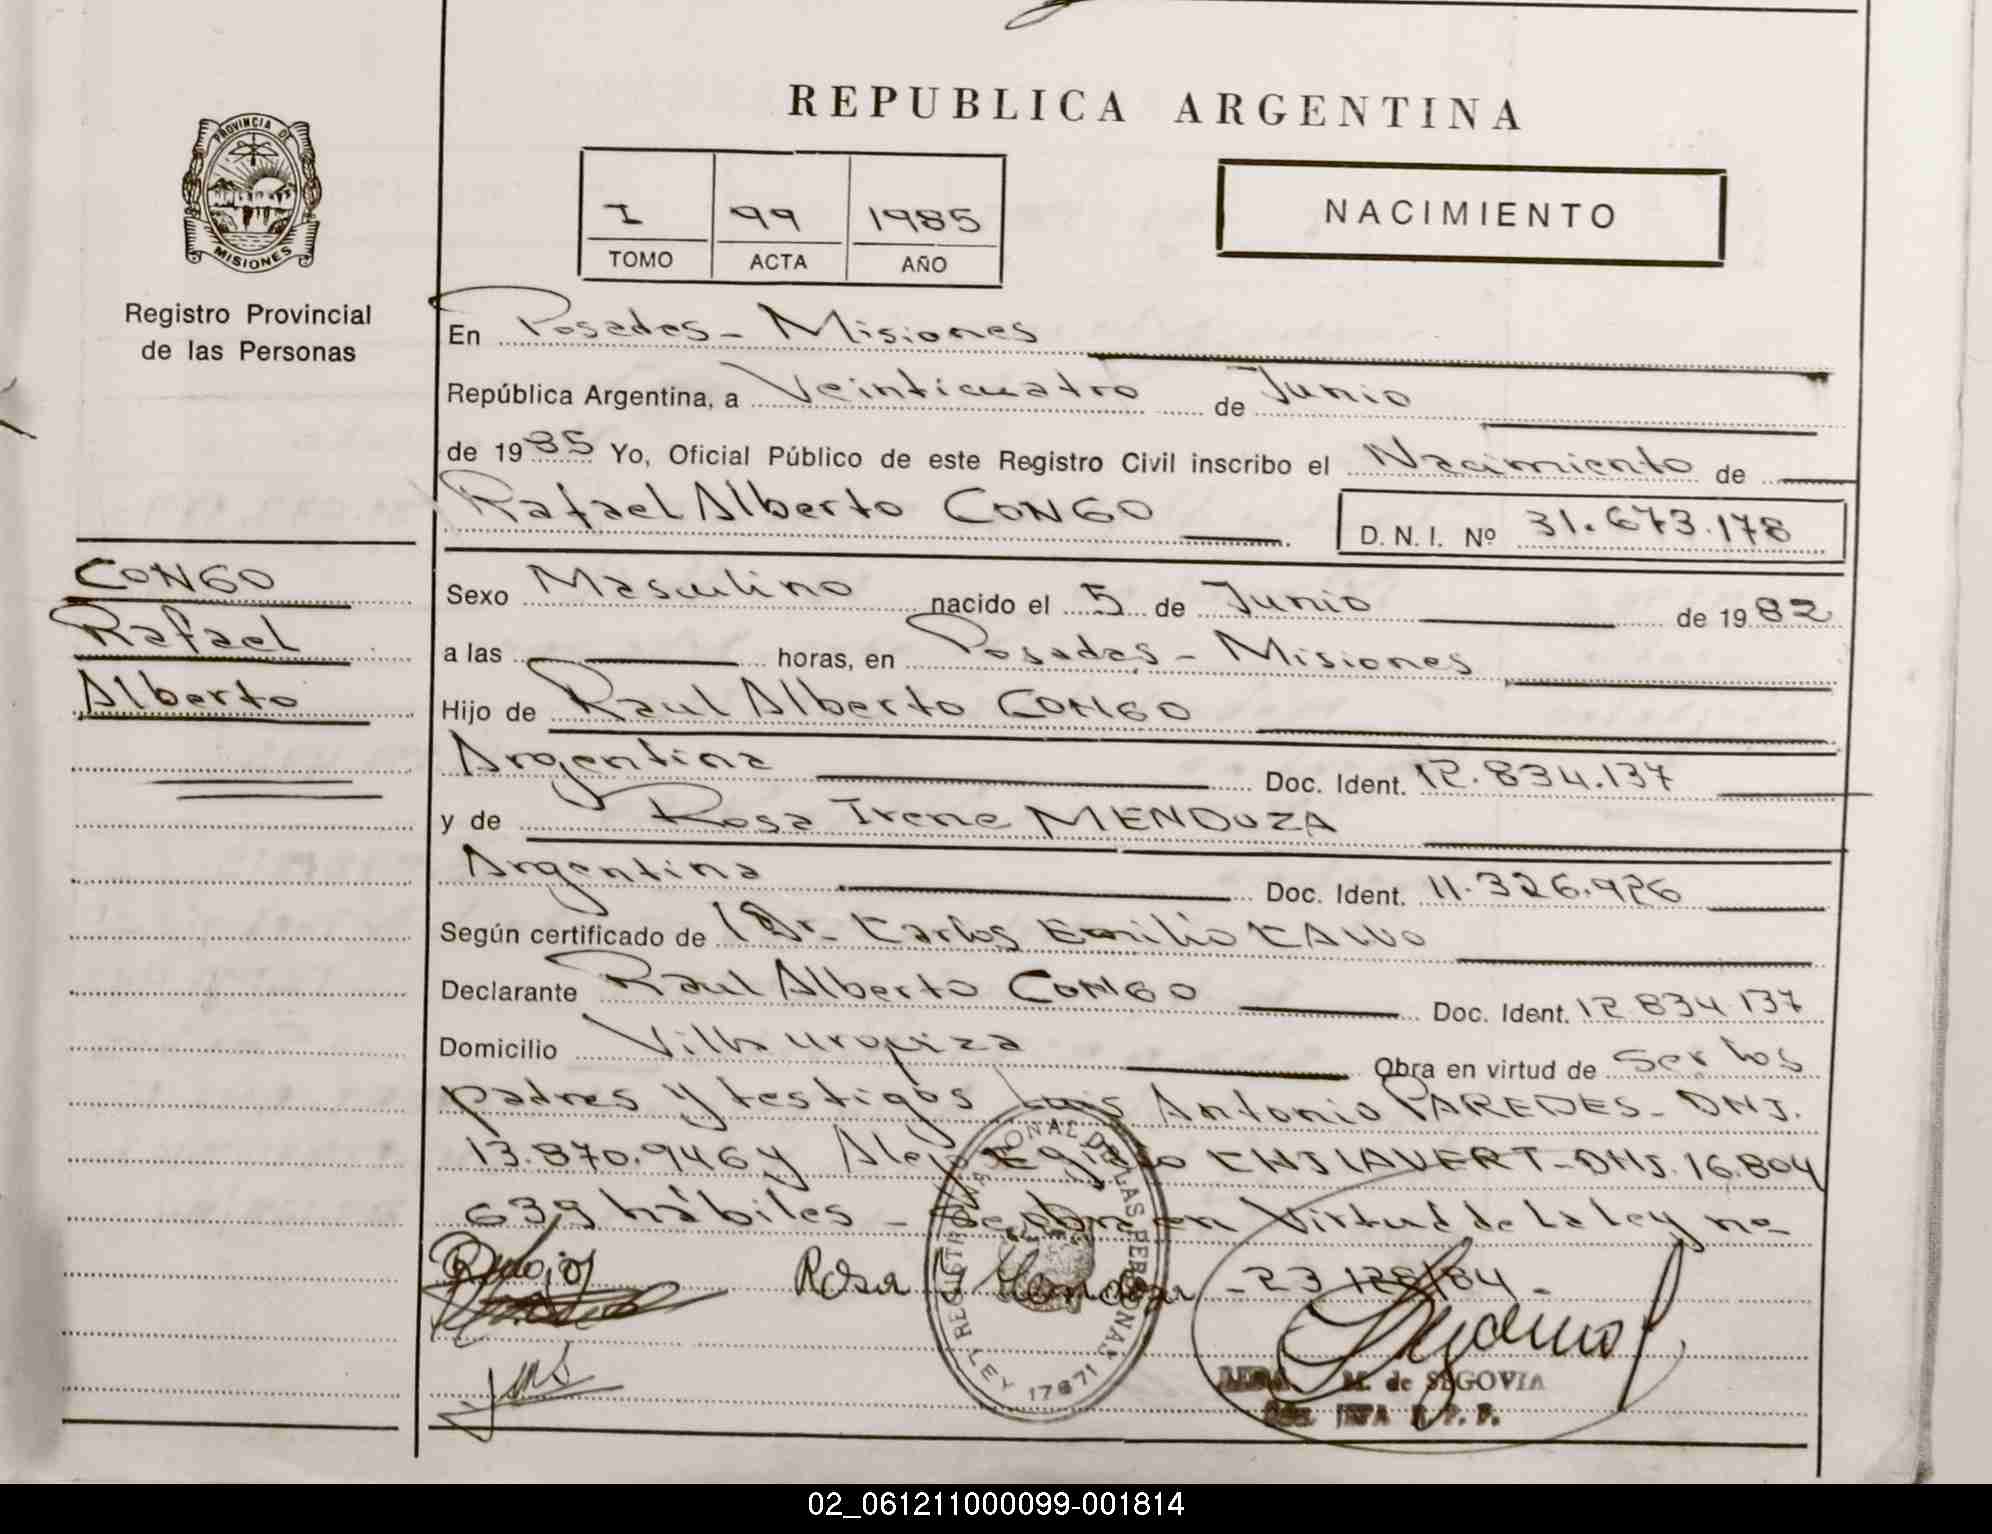 REPUBLICA ARGENTINA
PROVINCIA DE
MISIONES
Registro Provincial
de las Personas
I 99 1985
TOMO ACTA AÑO
NACIMIENTO
En Posadas - Misiones
República Argentina, a Veinticuatro de Junio
de 1985 Yo, Oficial Público de este Registro Civil inscribo el Nacimiento de
Rafael Alberto CONGO D. N. I. Nº 31.673.178
CONGO
Rafael
Alberto
Sexo Masculino nacido el 5 de Junio de 1982
a las horas, en Posadas - Misiones
Hijo de Raul Alberto CONGO
Argentina Doc. Ident. 12.834.137
y de Rosa Irene MENDOZA
Argentina Doc. Ident. 11.326.926
Según certificado de Dr. Carlos Emilio
Declarante Raul Alberto CONGO Doc. Ident. 12 834 137
Domicilio Villa urquiza Obra en virtud de ser los
padres y testigos Luis Antonio PAREDES - DNI.
13.870.946 y DNI. 16.804
639 hábiles - en Virtud de La Ley nº
Rosa Mendoza - 23 /84 -
M. de SEGOVIA
JEFA R. P. P.
17671
02_061211000099-001814